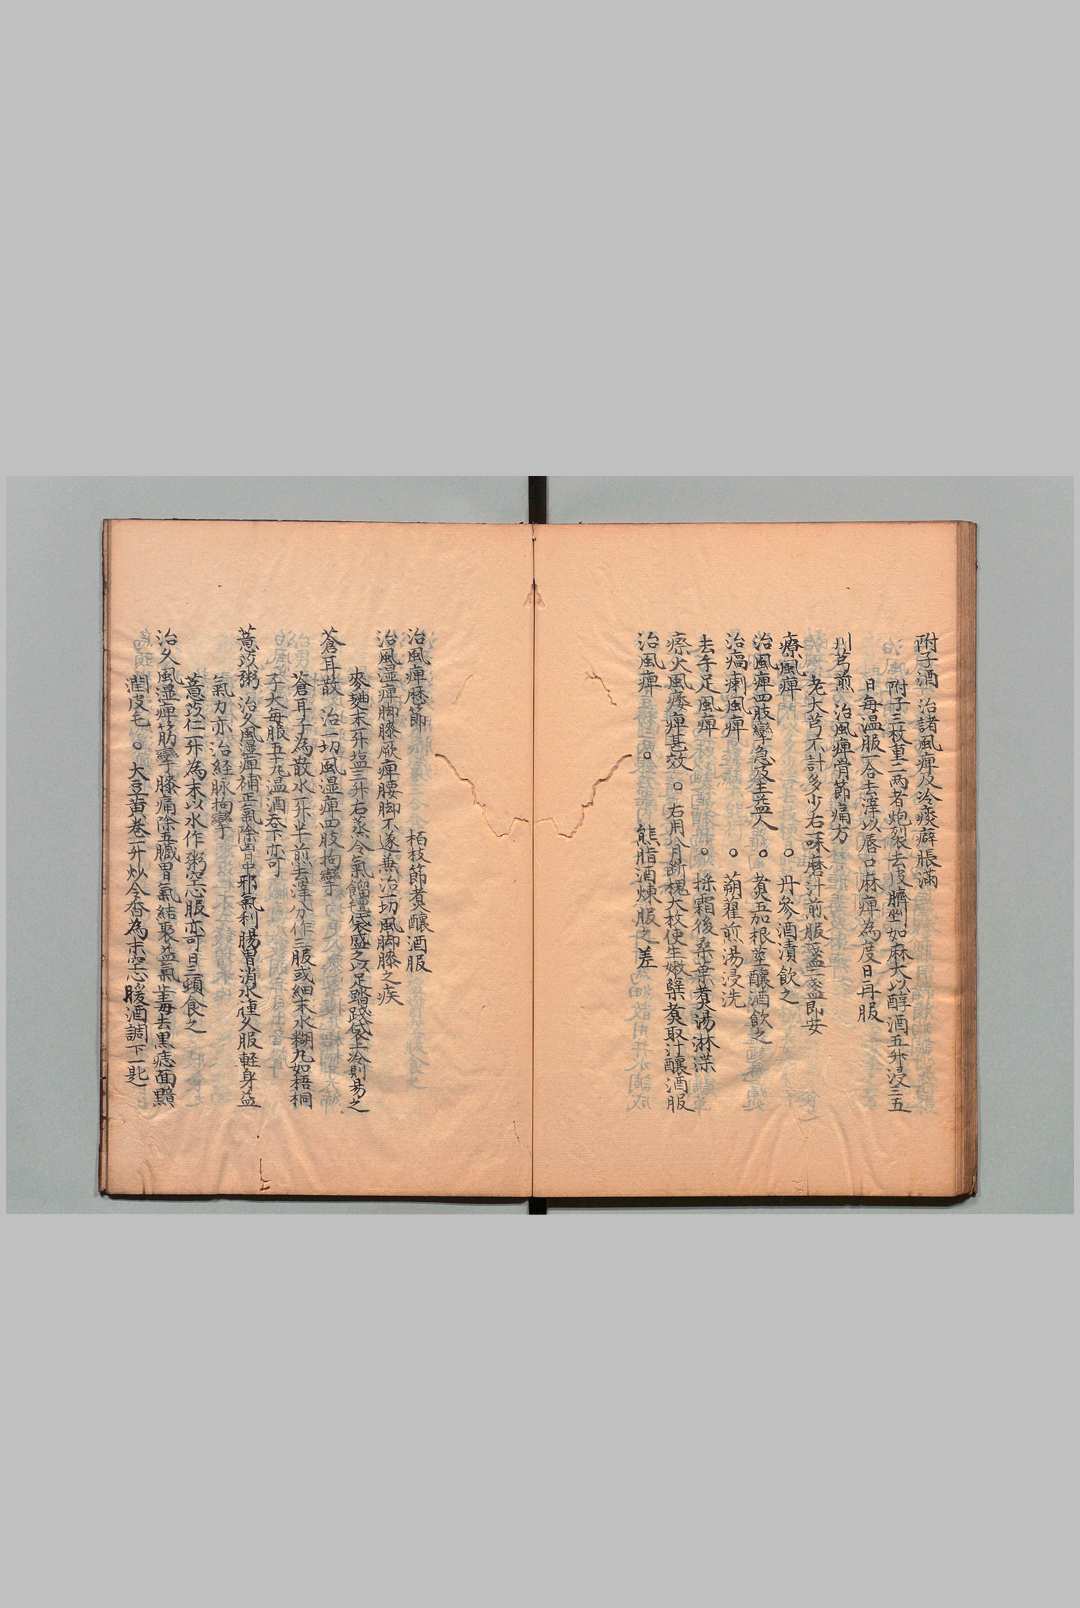 附子酒 治諸風痺及冷痰癖脹滿
附子三枚重二兩者炮裂去皮臍剉如麻大以醇酒五升浸三五
日每溫服一合去滓以唇口麻痺為度日再服
川芎煎 治風痺骨節痛方
老大芎不計多少右一味磨汁煎服盞二盞即安
療風痺 ○ 丹參酒漬飲之
治風痺四肢攣急 ○ 煮五加根莖釀酒飲之
治瘑痢風痺 ○ 蒴藋煎湯浸洗
去手足風痺 ○ 採霜後桑葉煮湯淋渫
療大風痿痺甚效 ○ 右用八月斷槐大枝使生嫩櫱煮取汁釀酒服
治風痺 ○ 熊脂酒煉服之差
治風痺歷節 柏枝節煮釀酒服
治風濕痺脚膝厥痺腰脚不遂兼治一切風脚膝之疾
麥麯末一升塩三升右蒸令氣餾袋盛之以足踏袋上冷則易之
蒼耳散 治一切風湿痺四肢拘攣
蒼耳子為散水一升半煎去滓分作三服或細末水糊丸如梧桐
子大每服五十丸溫酒吞下亦可
薏苡粥 治久風湿痺補正氣除胃中邪氣利腸胃消水腫久服軽身益
氣力亦治経脉拘攣
薏苡仁一升為末以水作粥空心服亦可日三頓食之
治久風湿痺筋攣膝痛除五臓胃氣結聚益氣止毒去黒痣面䵟
潤皮毛 ○ 大豆黃卷一升炒令香為末空心暖酒調下一匙